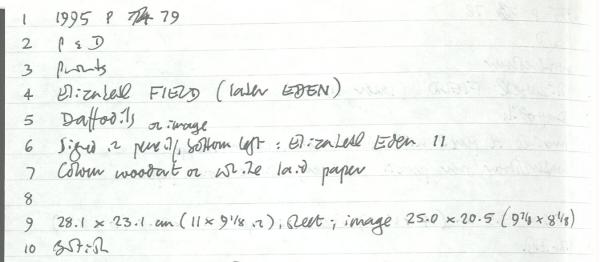 1 1995 P 79
2 P & D
3 Prints
4 Elizabeth FIELD (later EDEN)
5 Daffodils
6 Signed in pencil, bottom left on image : Elizabeth Eden 11
7 Colour woodcut on white laid paper
8
9 28.1 x 23.1 cm (11 x 9 1/8 in), sheet ; image 25.0 x 20.5 (9 7/8 x 8 1/8)
10 British